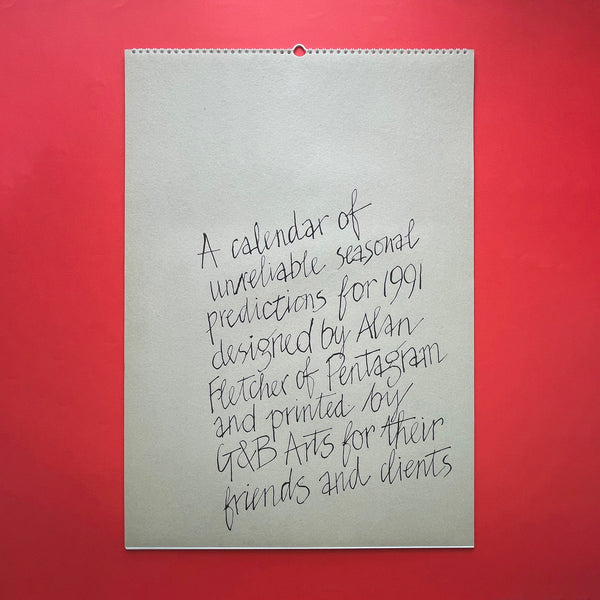 A calendar of
unreliable seasonal
predictions for 1991
designed by Alan
Fletcher of Pentagram
and printed by
G&B Arts for their
friends and clients